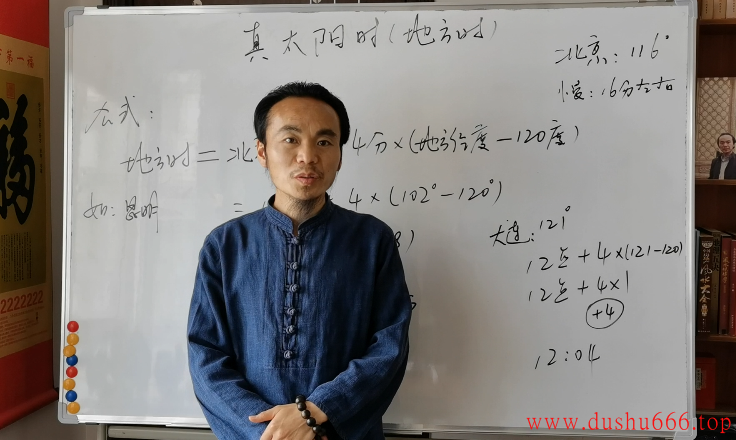 真太阳时(地方时)
北京: 116°
慢: 16分左右
公式:
地方时 = 北 4分×(地方经度-120度)
如: 昆明 = 4×(102°-120°)
8)
大连: 121°
12点 + 4×(121-120)
12点 + 4×1
+4
12:04
第一福
福
2222222
风水大全
www.dushu666.top